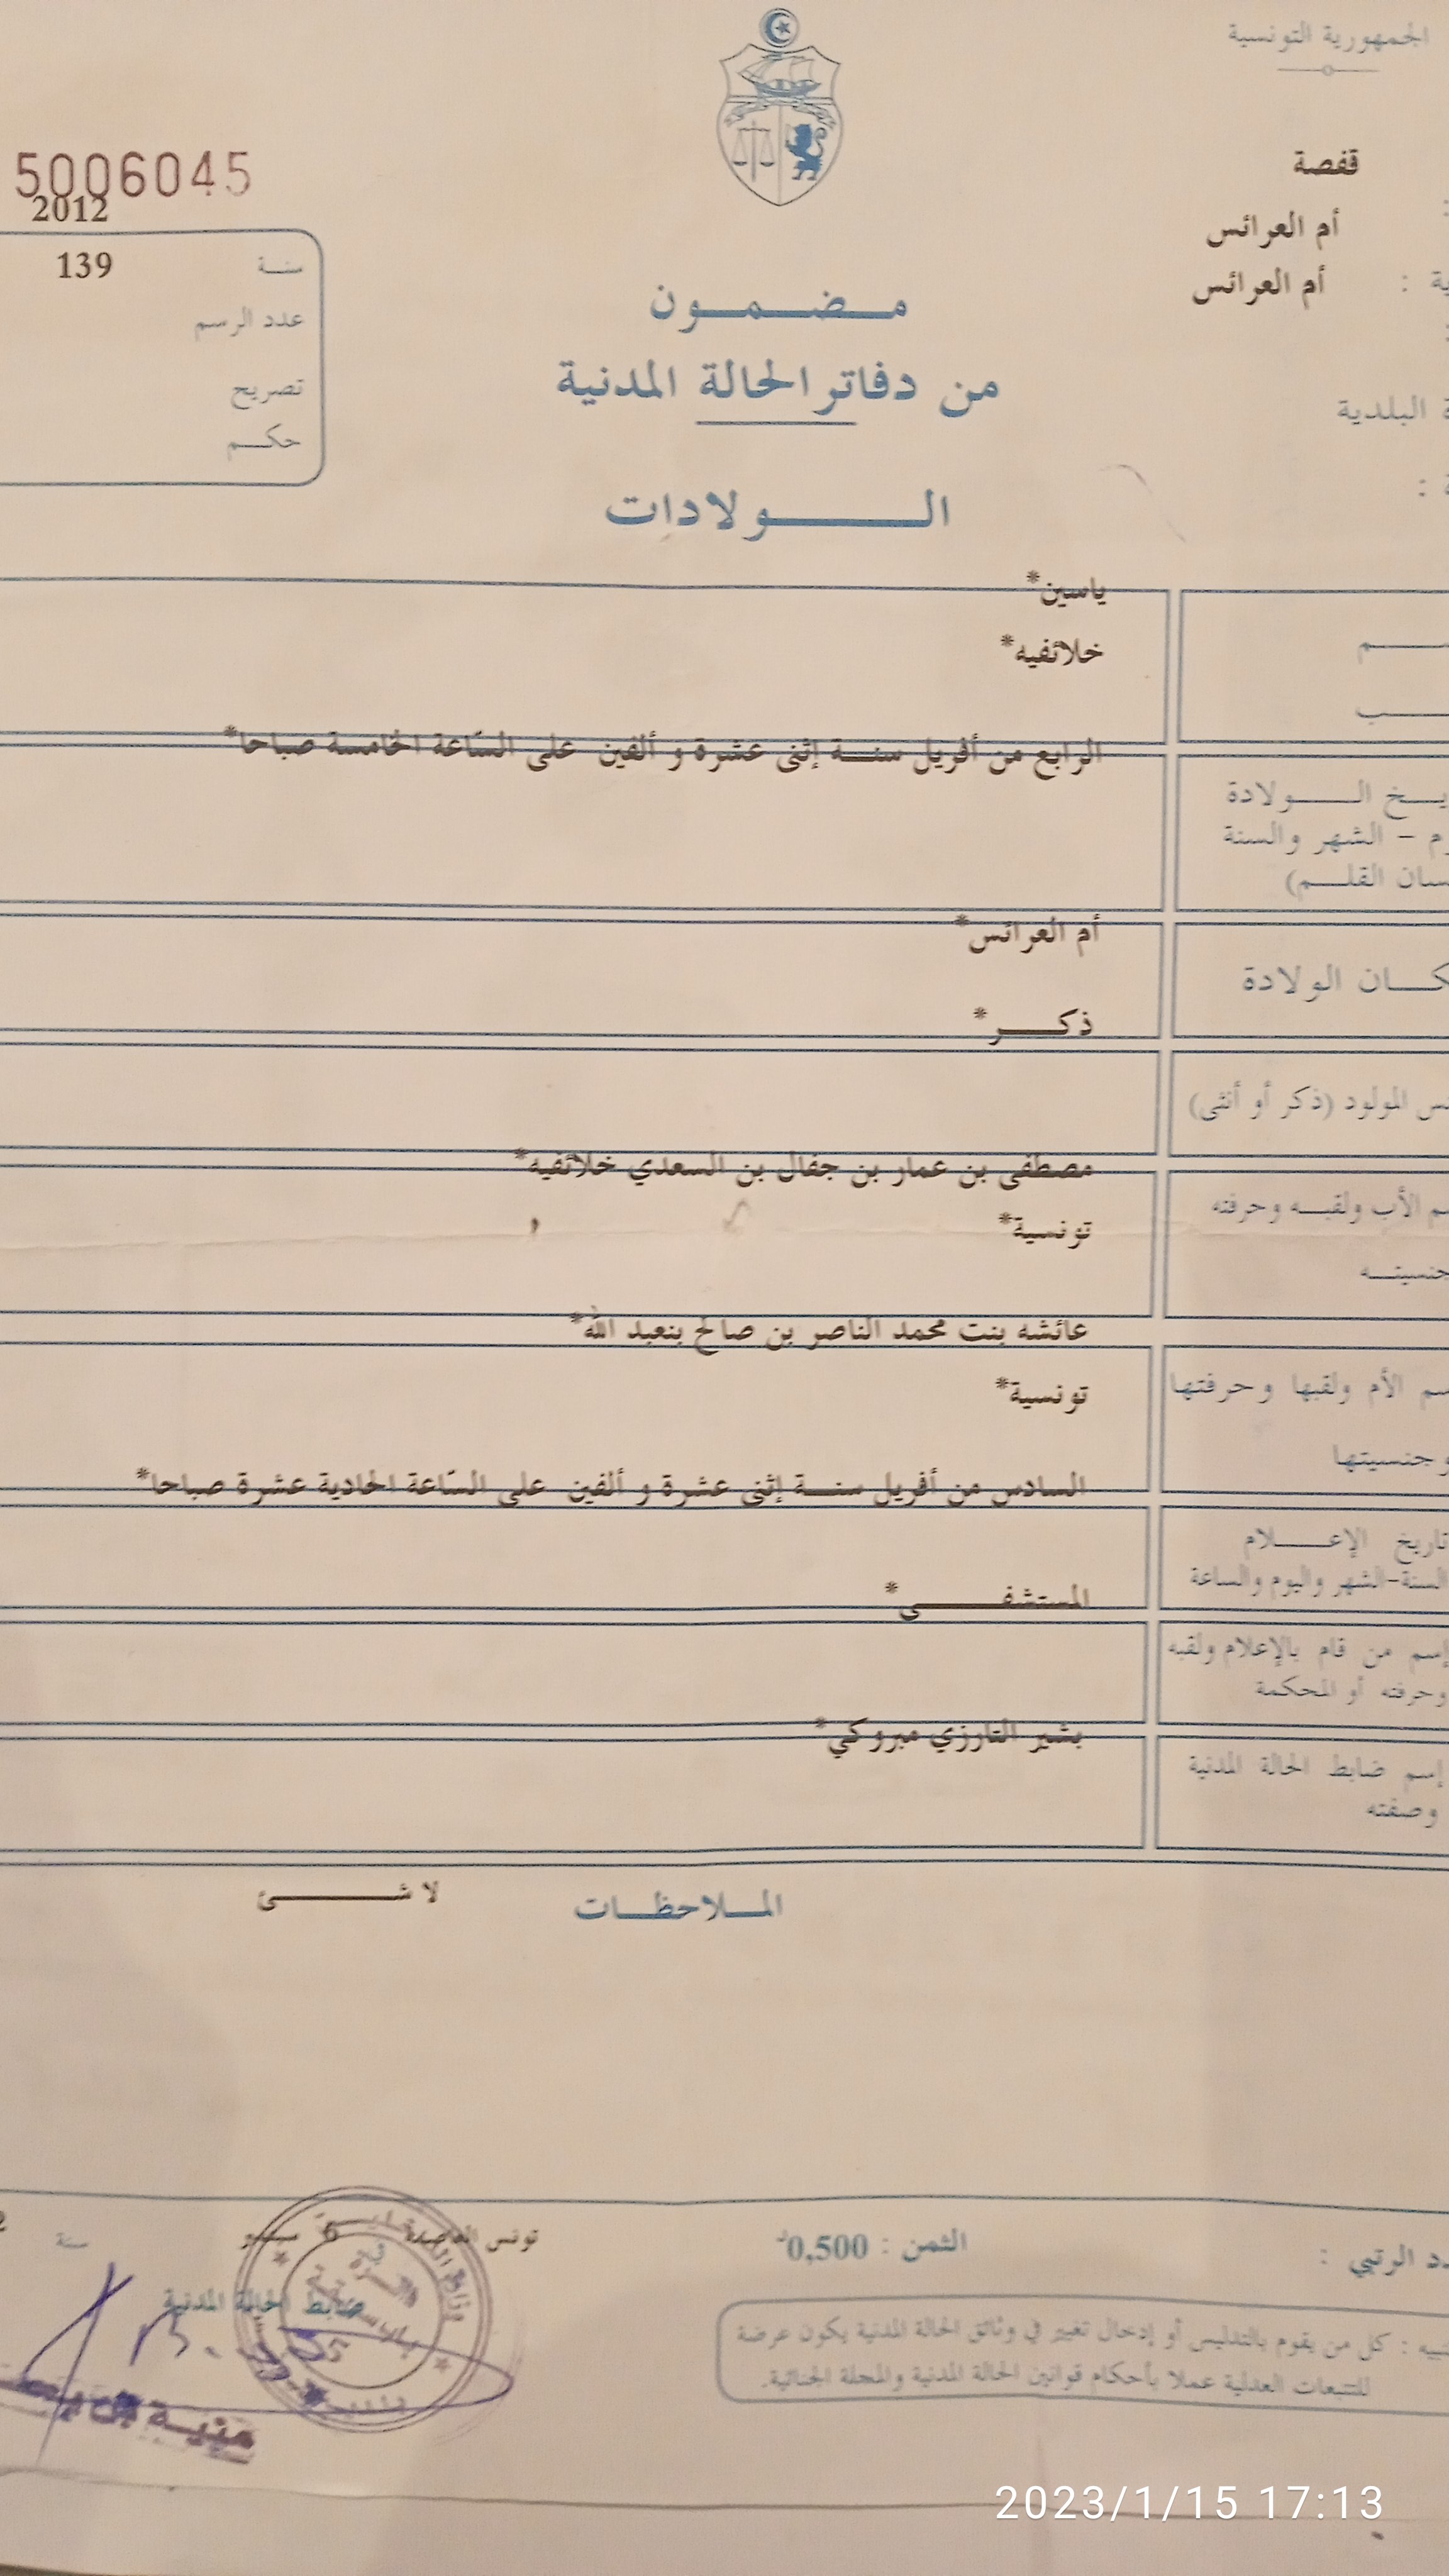 الجمهورية التونسية
قفصة
أم العرائس
أم العرائس
البلدية
5006045
2012
سنة
139
عدد الرسم
تصريح
حكم
مضمون
من دفاتر الحالة المدنية
الولادات
ياسين*
خلائفيه*
الرابع من أفريل سنة إثنى عشرة و ألفين على السّاعة الخامسة صباحا*
الولادة
الشهر والسنة
القلم)
أم العرائس*
الولادة
ذكر*
المولود (ذكر أو أنثى)
مصطفى بن عمار بن جفال بن السعدي خلائفيه*
الأب ولقبه وحرفته
تونسية*
عائشه بنت محمد الناصر بن صالح بنعبد الله*
الأم ولقبها وحرفتها
تونسية*
وجنسيتها
السادس من أفريل سنة إثنى عشرة و ألفين على السّاعة الحادية عشرة صباحا*
تاريخ الإعلام
السنة-الشهر واليوم والساعة
المستشفى*
إسم من قام بالإعلام ولقبه
وحرفته أو المحكمة
بشير التارزي مبروكي*
إسم ضابط الحالة المدنية
وصفته
الملاحظات
لا شئ
الرتبي :
الثمن : 0,500د
تونس
سنة
ضابط الحالة المدنية
كل من يقوم بالتدليس أو إدخال تغيير في وثائق الحالة المدنية يكون عرضة
للتتبعات العدلية عملا بأحكام قوانين الحالة المدنية والمجلة الجنائية.
منية بن
2023/1/15 17:13